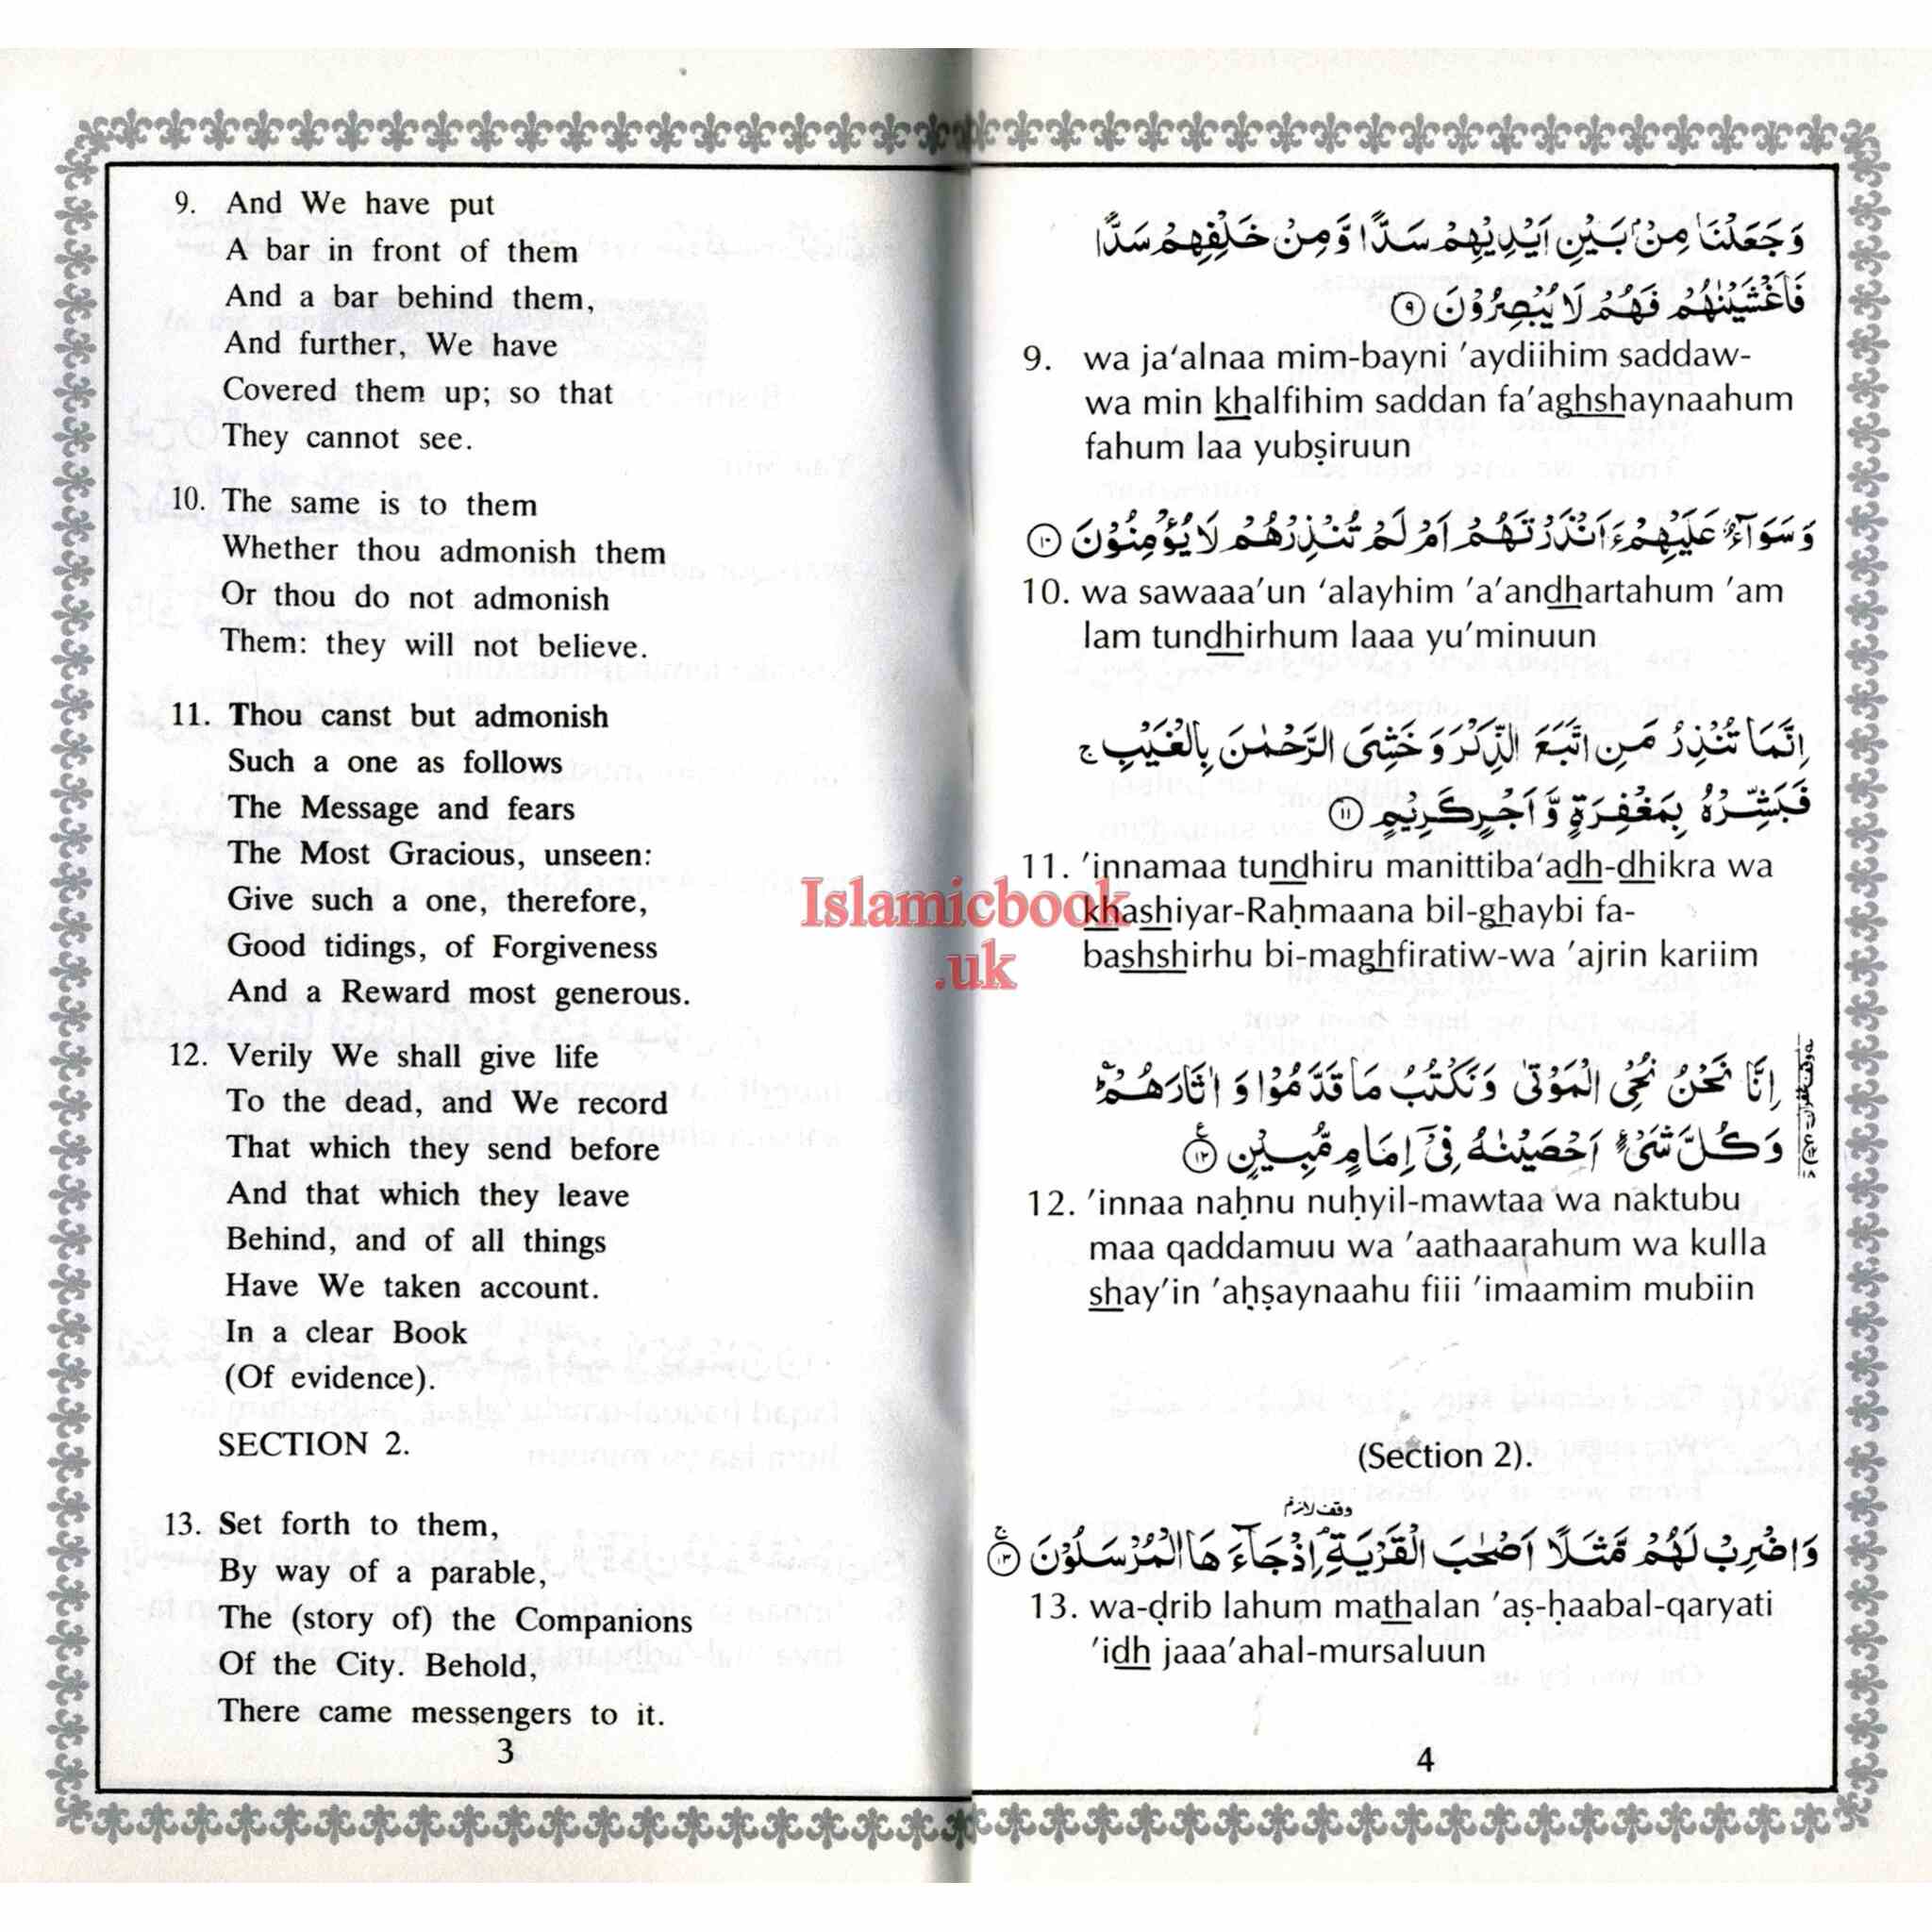 9. And We have put
A bar in front of them
And a bar behind them,
And further, We have
Covered them up; so that
They cannot see.
10. The same is to them
Whether thou admonish them
Or thou do not admonish
Them: they will not believe.
11. Thou canst but admonish
Such a one as follows
The Message and fears
The Most Gracious, unseen:
Give such a one, therefore,
Good tidings, of Forgiveness
And a Reward most generous.
12. Verily We shall give life
To the dead, and We record
That which they send before
And that which they leave
Behind, and of all things
Have We taken account.
In a clear Book
(Of evidence).
SECTION 2.
13. Set forth to them,
By way of a parable,
The (story of) the Companions
Of the City. Behold,
There came messengers to it.
3
وَجَعَلْنَا مِنْۢ بَيْنِ اَيْدِيْهِمْ سَدًّا وَّمِنْ خَلْفِهِمْ سَدًّا
فَاَغْشَيْنٰهُمْ فَهُمْ لَا يُبْصِرُوْنَ ۹
9. wa ja‘alnaa mim-bayni ’aydiihim saddaw-
wa min khalfihim saddan fa’aghshaynaahum
fahum laa yubṣiruun
وَسَوَآءٌ عَلَيْهِمْ ءَاَنْذَرْتَهُمْ اَمْ لَمْ تُنْذِرْهُمْ لَا يُؤْمِنُوْنَ ۱۰
10. wa sawaaa’un ‘alayhim ’a’andhartahum ’am
lam tundhirhum laaa yu’minuun
اِنَّمَا تُنْذِرُ مَنِ اتَّبَعَ الذِّكْرَ وَ خَشِىَ الرَّحْمٰنَ بِالْغَيْبِ ج
فَبَشِّرْهُ بِمَغْفِرَةٍ وَّ اَجْرٍ كَرِيْمٍ ۱۱
11. ’innamaa tundhiru manittiba‘adh-dhikra wa
khashiyar-Raḥmaana bil-ghaybi fa-
bashshirhu bi-maghfiratiw-wa ’ajrin kariim
اِنَّا نَحْنُ نُحْىِ الْمَوْتٰى وَنَكْتُبُ مَا قَدَّمُوْا وَ اٰثَارَهُمْ ؕ
وَكُلَّ شَىْءٍ اَحْصَيْنٰهُ فِىْۤ اِمَامٍ مُّبِيْنٍ ۱۲
12. ’innaa naḥnu nuḥyil-mawtaa wa naktubu
maa qaddamuu wa ’aathaarahum wa kulla
shay’in ’aḥṣaynaahu fiii ’imaamim mubiin
(Section 2).
وقف لازم
وَاضْرِبْ لَهُمْ مَّثَلًا اَصْحٰبَ الْقَرْيَةِ ۘ اِذْ جَآءَ هَا الْمُرْسَلُوْنَ ۱۳
13. wa-ḍrib lahum mathalan ’aṣ-ḥaabal-qaryati
’idh jaaa’ahal-mursaluun
4
Islamicbook
.uk